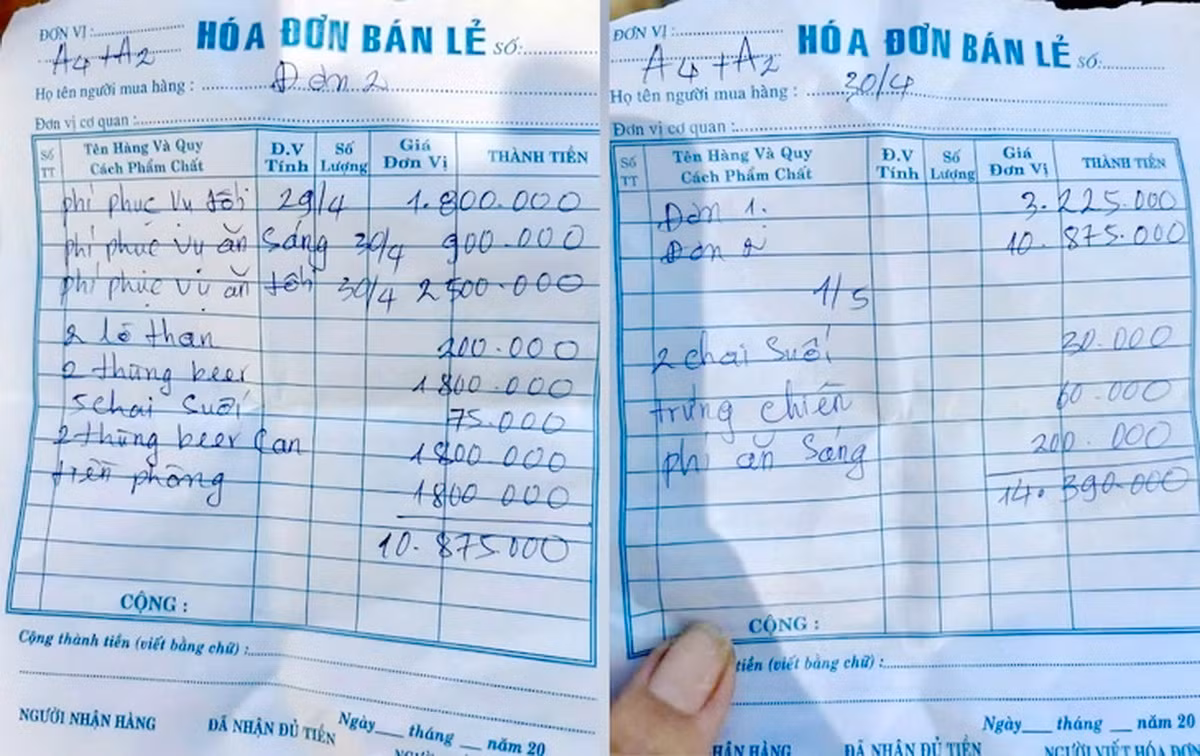 ĐƠN VỊ:
HÓA ĐƠN BÁN LẺ SỐ:
A4+A2
Họ tên người mua hàng : Đơn 2
Đơn vị cơ quan :
Số TT Tên Hàng Và Quy Cách Phẩm Chất Đ.V Tính Số Lượng Giá Đơn Vị THÀNH TIỀN
phí phục vụ tối 29/4 1.800.000
phí phục vụ ăn sáng 30/4 900.000
phí phục vụ ăn tối 30/4 2500.000
2 lò than 200.000
2 thùng beer 1800.000
5chai suối 75.000
2 thùng beer can 1800 000
tiền phòng 1800 000
10.875.000
CỘNG :
Cộng thành tiền (viết bằng chữ) :
Ngày tháng năm 20
NGƯỜI NHẬN HÀNG ĐÃ NHẬN ĐỦ TIỀN
ĐƠN VỊ:
HÓA ĐƠN BÁN LẺ SỐ:
A4+A2
Họ tên người mua hàng : 30/4
Đơn vị cơ quan :
Số TT Tên Hàng Và Quy Cách Phẩm Chất Đ.V Tính Số Lượng Giá Đơn Vị THÀNH TIỀN
Đơn 1. 3.225.000
Đơn 2 10.875.000
1/5
2 chai suối 30.000
trứng chiên 60.000
phí ăn sáng 200.000
14.390.000
CỘNG :
tiền (viết bằng chữ) :
Ngày tháng năm 20
HẬN HÀNG ĐÃ NHẬN ĐỦ TIỀN NGƯỜI VIẾT HÓA ĐƠ